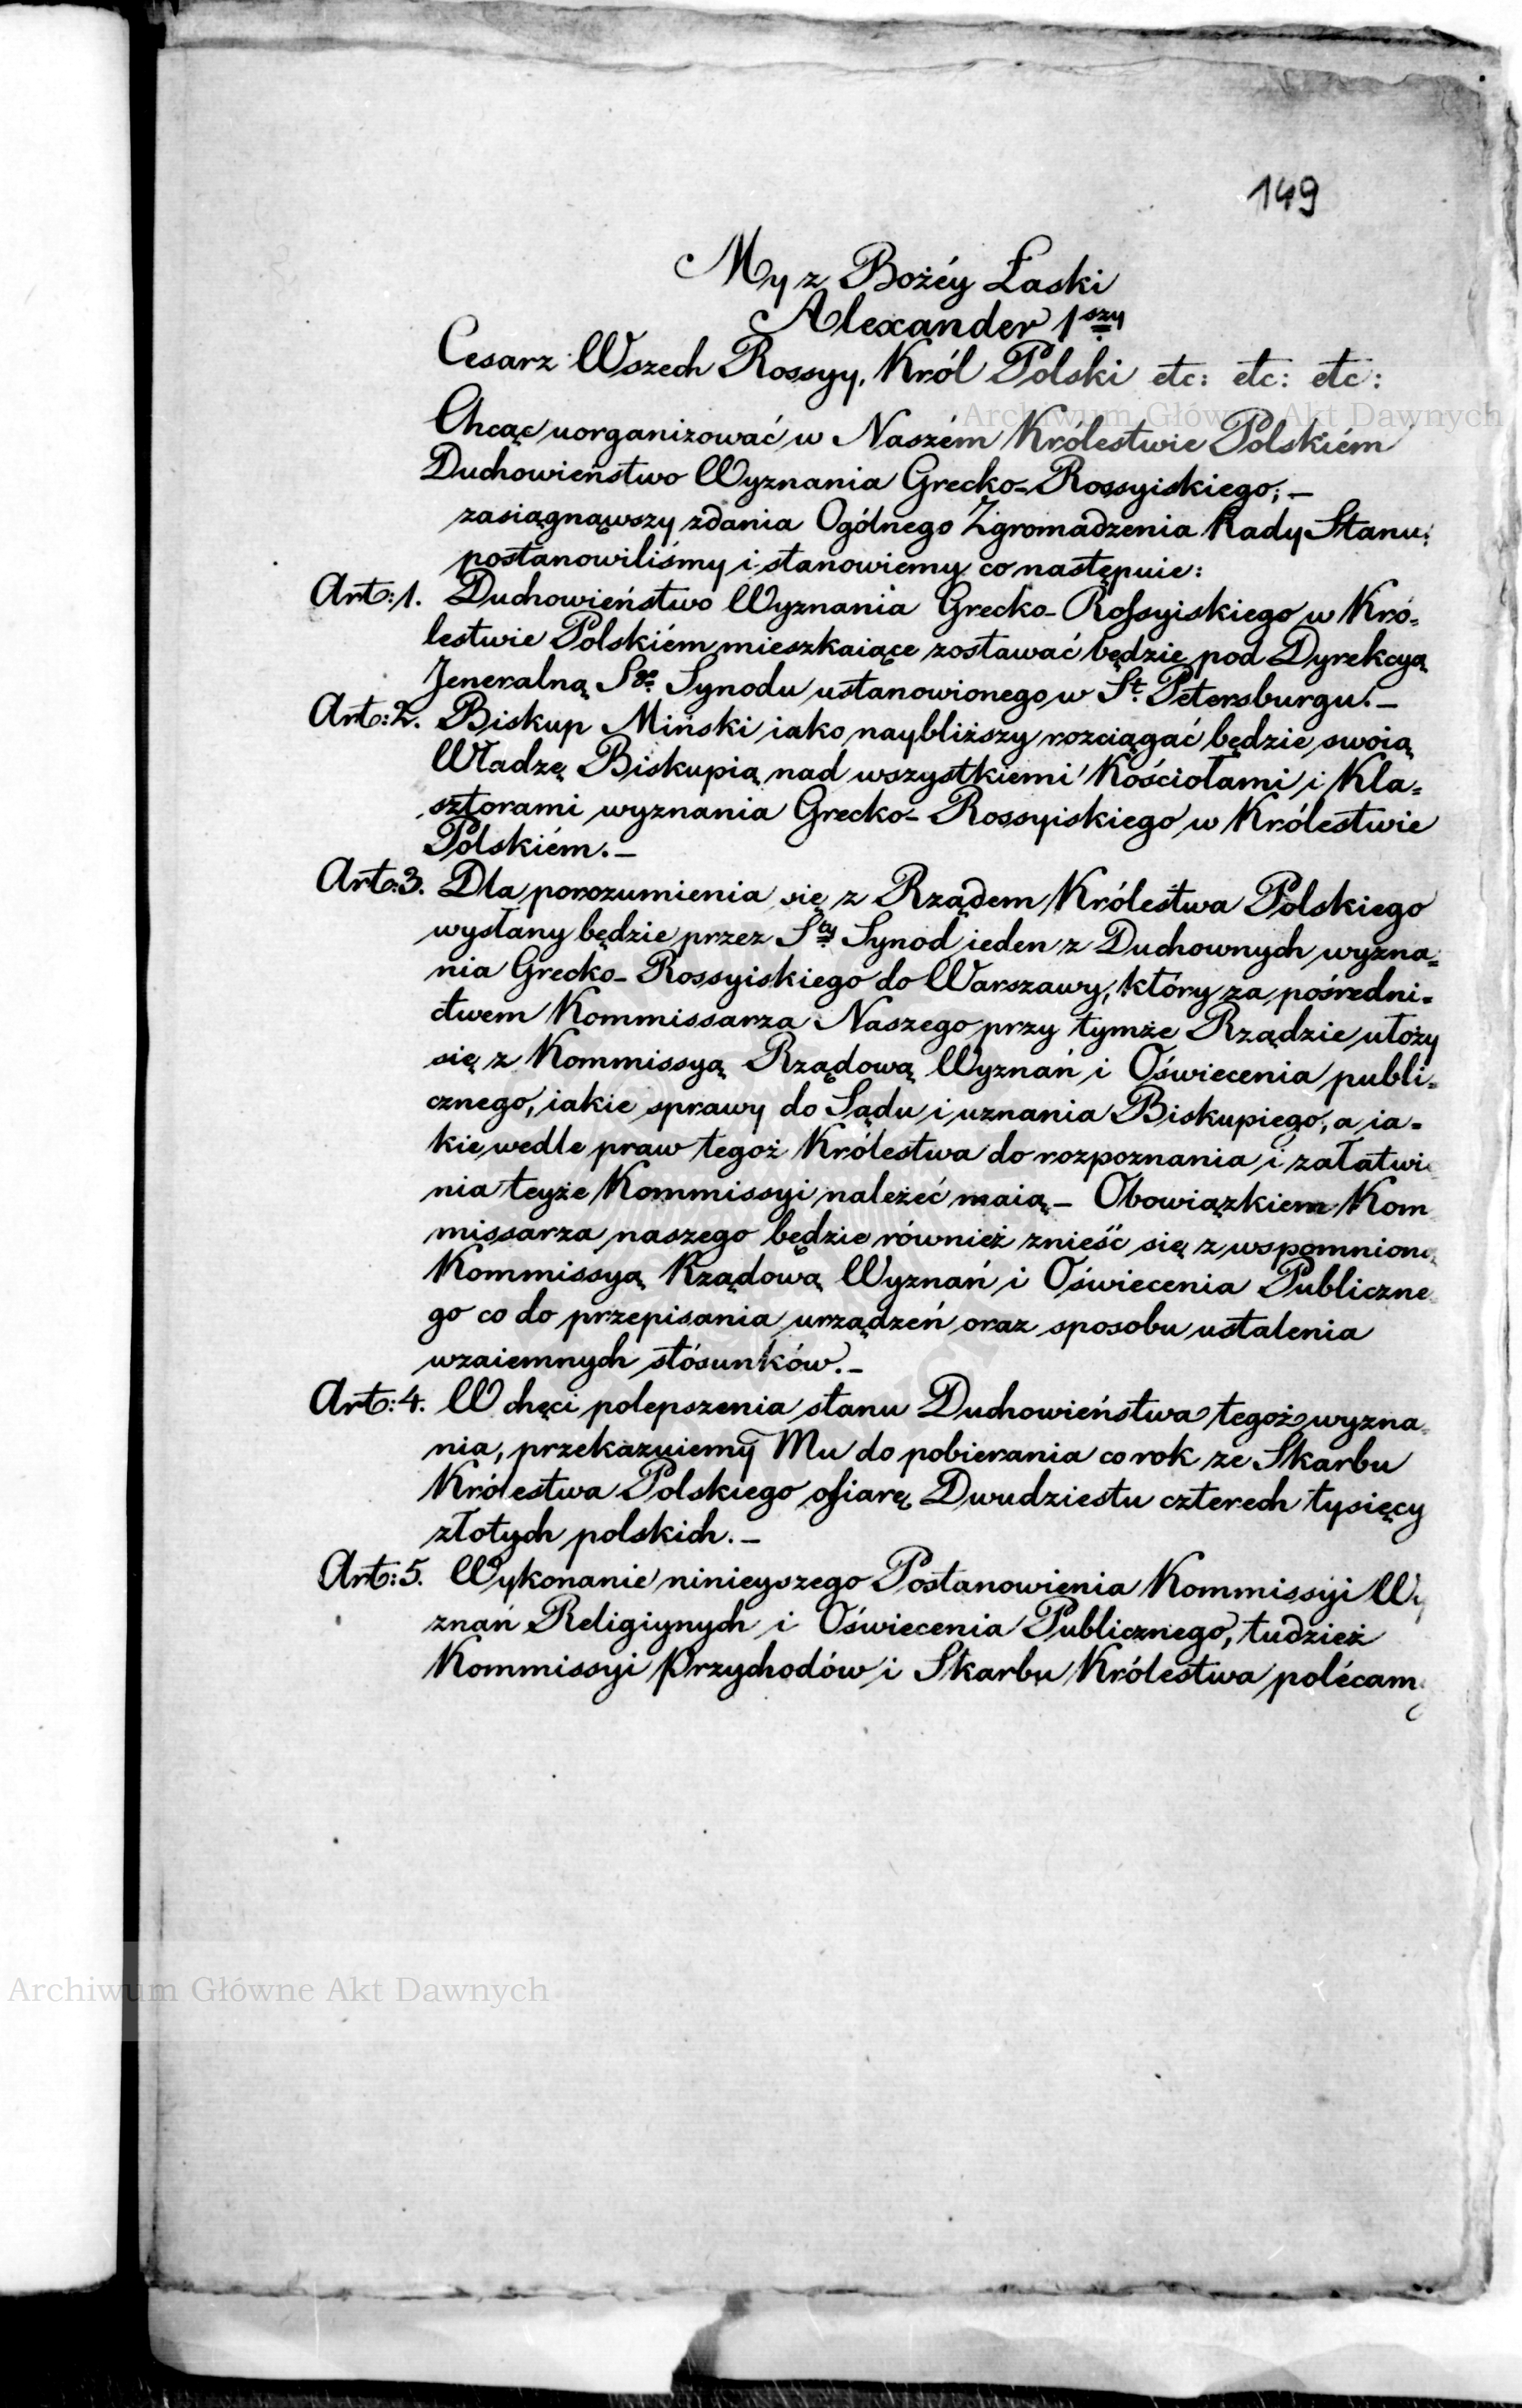 149
My z Bożéy Łaski
Alexander 1szy
Cesarz Wszech Rossyy, Król Polski etc: etc: etc:
Archiwum Główne Akt Dawnych
Chcąc uorganizować w Naszém Królestwie Polskiém
Duchowieństwo Wyznania Grecko-Rossyiskiego; —
zasiągnąwszy zdania Ogólnego Zgromadzenia Rady Stanu;
postanowiliśmy i stanowiemy co następuie:
Art: 1. Duchowieństwo Wyznania Grecko-Rossyiskiego w Kró=
lestwie Polskiém mieszkaiące zostawać będzie pod Dyrekcyą
Jeneralną Sgo Synodu ustanowionego w St. Petersburgu. —
Art: 2. Biskup Miński iako naybliższy rozciągać będzie swoią
Władzę Biskupią nad wszystkiemi Kościołami i Kla=
sztorami wyznania Grecko-Rossyiskiego w Królestwie
Polskiém. —
Art: 3. Dla porozumienia się z Rządem Królestwa Polskiego
wysłany będzie przez Sty Synod ieden z Duchownych wyzna=
nia Grecko-Rossyiskiego do Warszawy, który za pośredni=
ctwem Kommissarza Naszego przy tymże Rządzie ułoży
się z Kommissyą Rządową Wyznań i Oświecenia publi=
cznego, iakie sprawy do Sądu i uznania Biskupiego, a ia=
kie wedle praw tegoż Królestwa do rozpoznania i załatwie
nia teyże Kommissyi należeć maią — Obowiązkiem Kom
missarza naszego będzie również znieść się z wspomnioną
Kommissyą Rządową Wyznań i Oświecenia Publiczne
go co do przepisania urządzeń oraz sposobu ustalenia
wzaiemnych stósunków. —
Art: 4. W chęci polepszenia stanu Duchowieństwa tegoż wyzna=
nia, przekazuiemy Mu do pobierania co rok ze Skarbu
Królestwa Polskiego ofiarę Dwudziestu czterech tysięcy
złotych polskich. —
Art: 5. Wykonanie ninieyszego Postanowienia Kommissyi Wy
znań Religiynych i Oświecenia Publicznego, tudzież
Kommissyi Przychodów i Skarbu Królestwa polécamy
Archiwum Główne Akt Dawnych